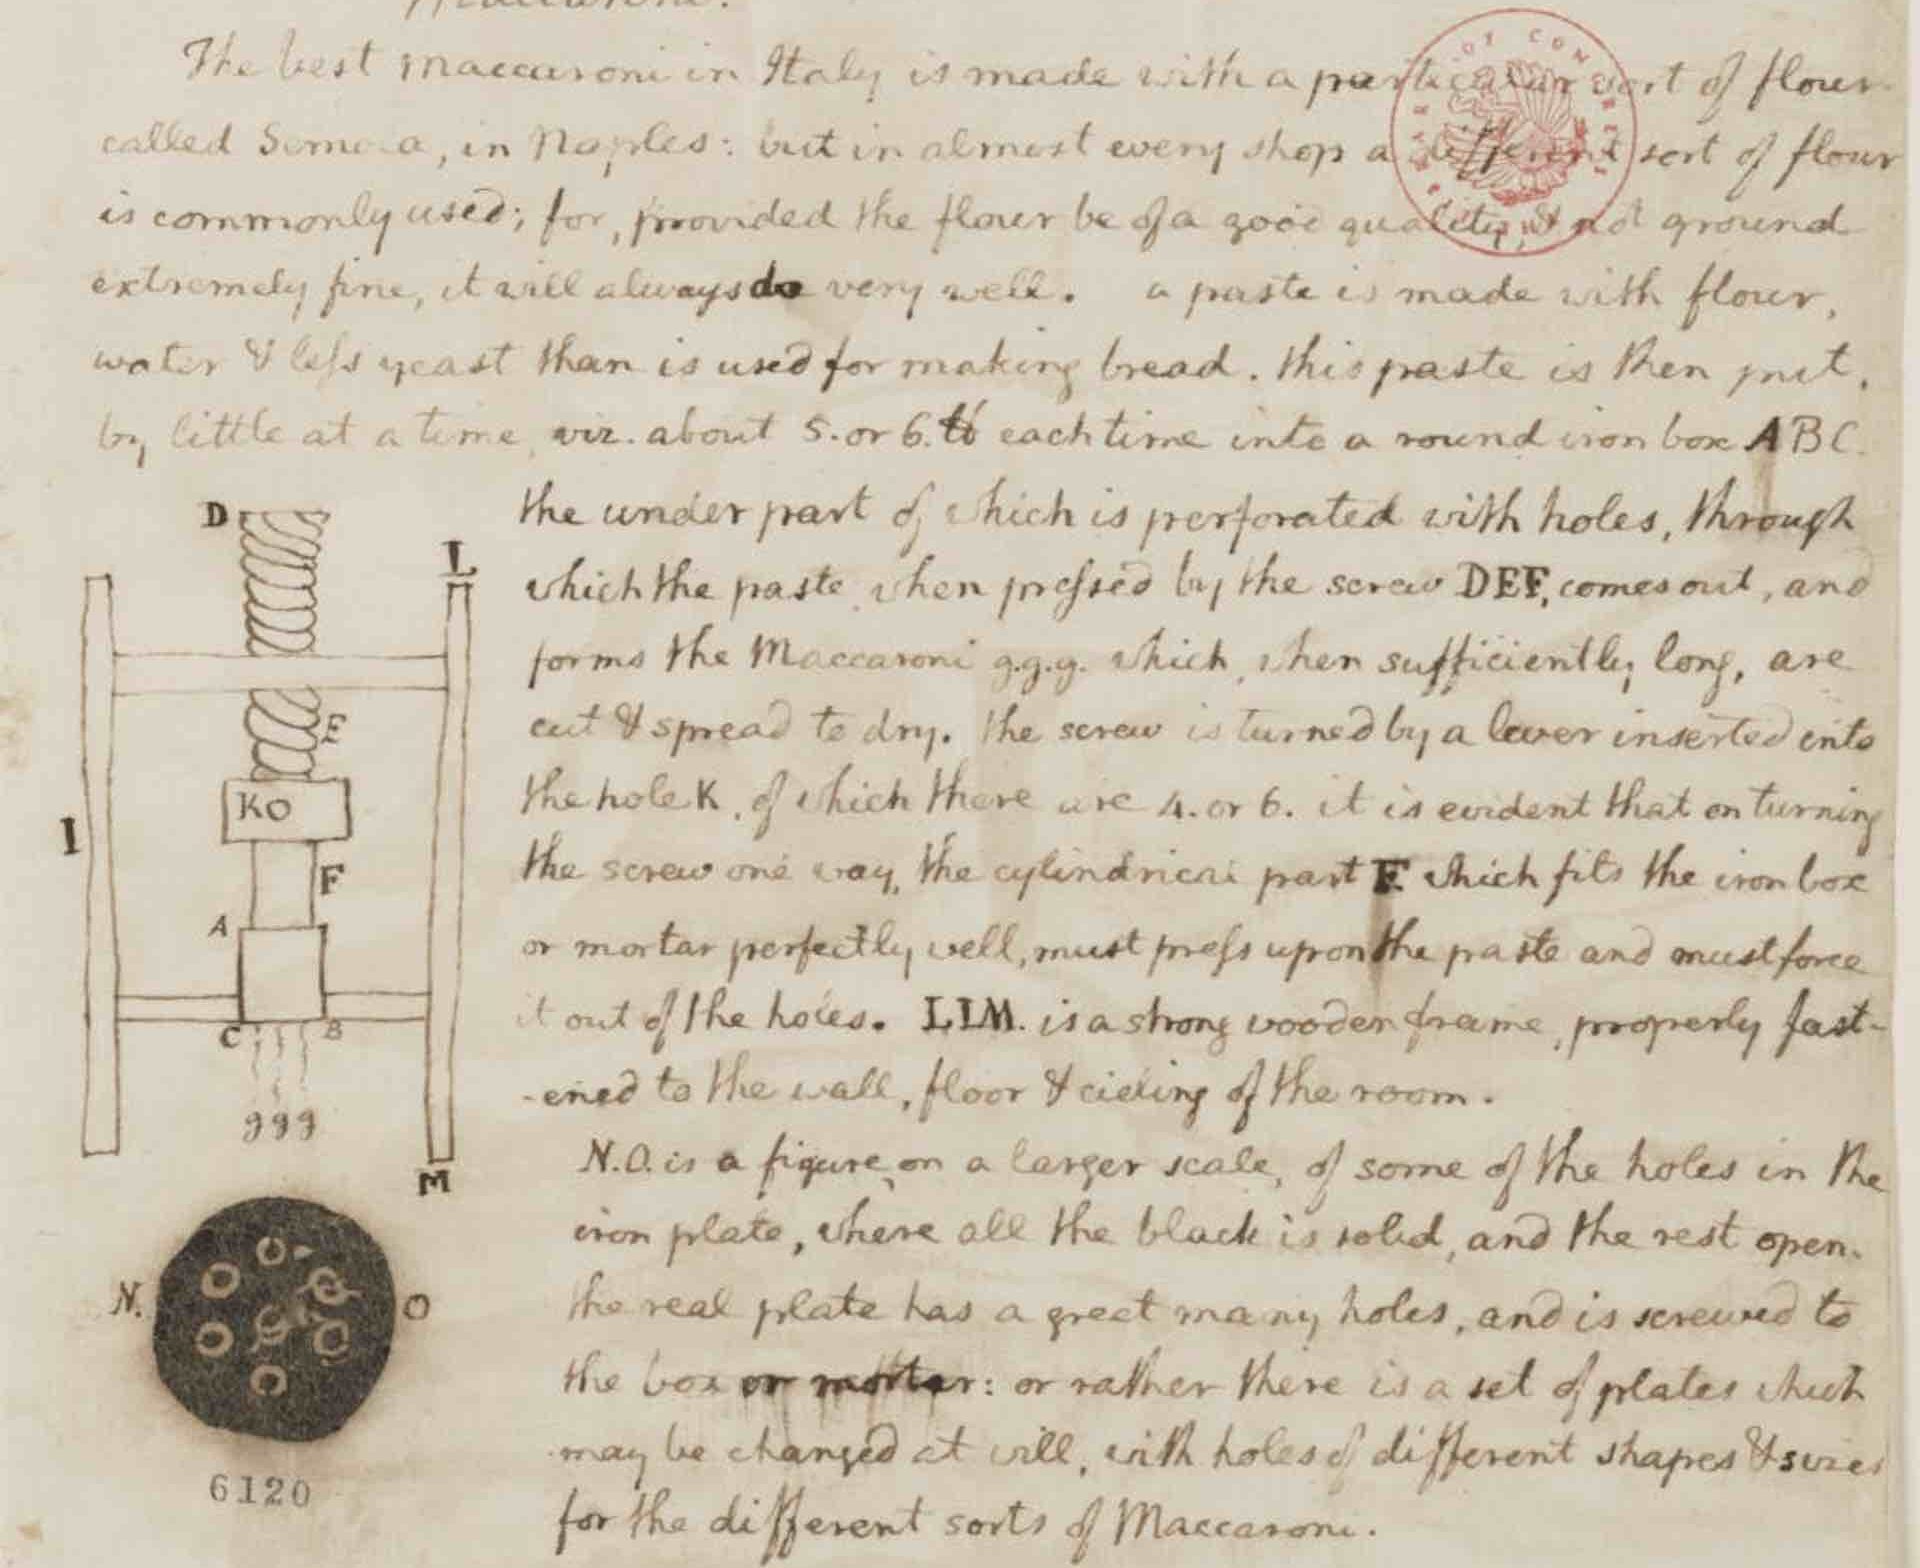 Maccaroni.
The best maccaroni in Italy is made with a particular sort of flour
called Semola, in Naples: but in almost every shop a different sort of flour
is commonly used; for, provided the flour be of a good quality, & not ground
extremely fine, it will always do very well. a paste is made with flour,
water & less yeast than is used for making bread. this paste is then put,
by little at a time, viz. about 5. or 6. ℔ each time into a round iron box ABC
the under part of which is perforated with holes, through
which the paste, when pressed by the screw DEF, comes out, and
forms the Maccaroni g.g.g. which, when sufficiently long, are
cut & spread to dry. the screw is turned by a lever inserted into
the hole K, of which there are 4. or 6. it is evident that on turning
the screw one way, the cylindrical part F. which fits the iron box
or mortar perfectly well, must press upon the paste and must force
it out of the holes. LIM. is a strong wooden frame, properly fast-
-ened to the wall, floor & cieling of the room.
N.O. is a figure, on a larger scale, of some of the holes in the
iron plate, where all the black is solid, and the rest open.
the real plate has a great many holes, and is screwed to
the box or mortar: or rather there is a set of plates which
may be changed at will, with holes of different shapes & sizes
for the different sorts of Maccaroni.
D
L
E
KO
I
F
A
C
B
ggg
M
N.
O
6120